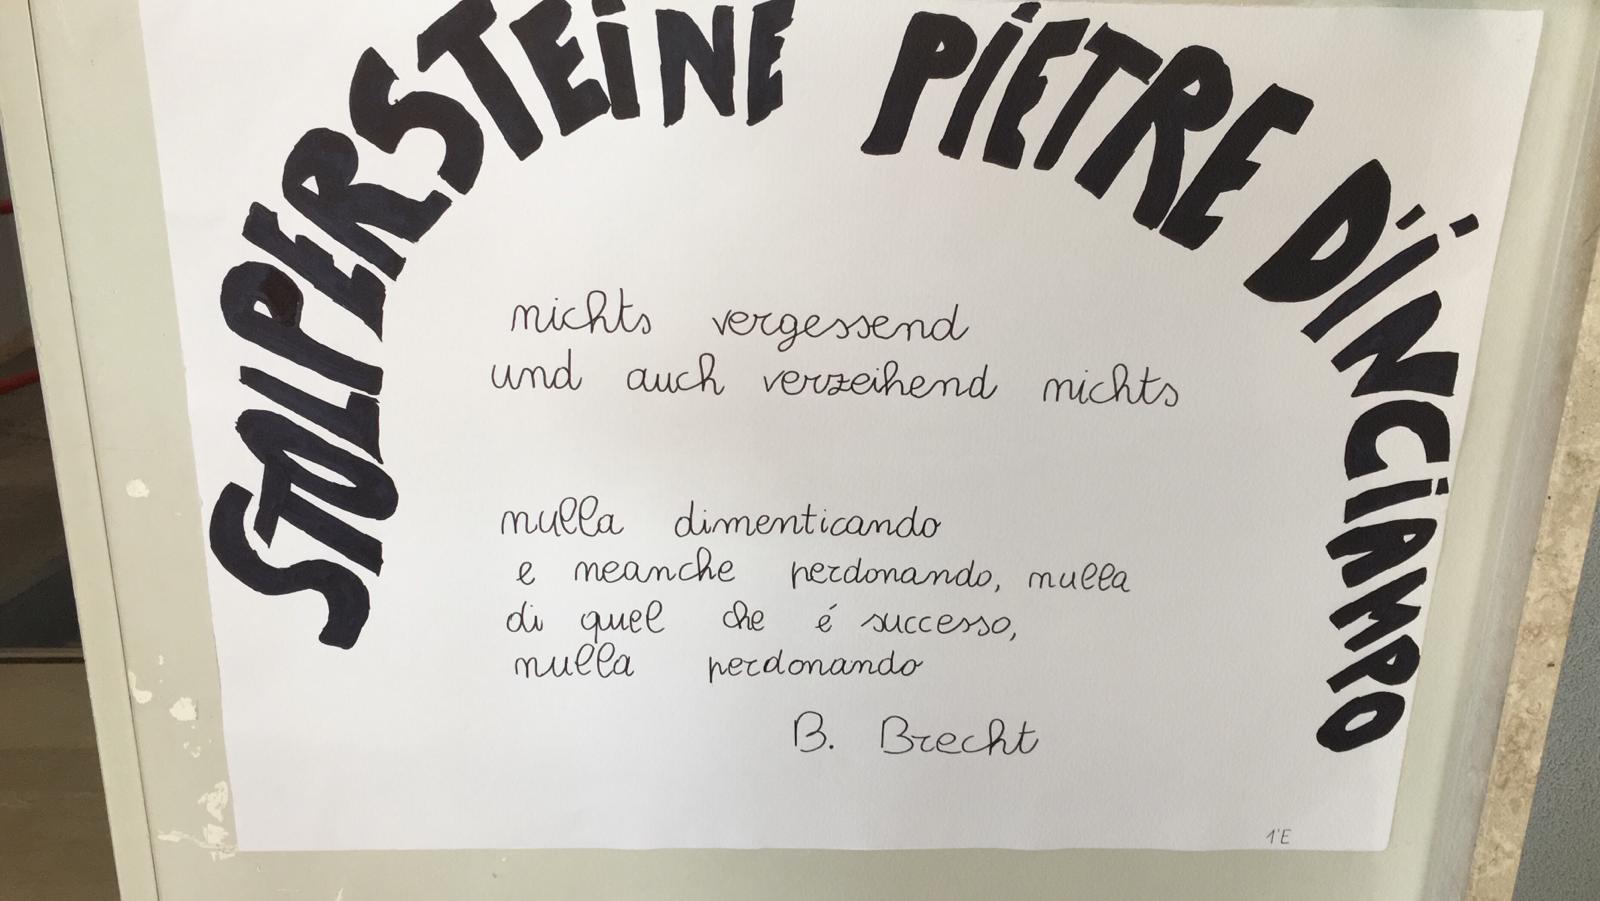 STOLPERSTEiNE PiETRE D'iNCiAMPO
nichts vergessend
und auch verzeihend nichts
nulla dimenticando
e neanche perdonando, nulla
di quel che é successo,
nulla perdonando
B. Brecht
1°E